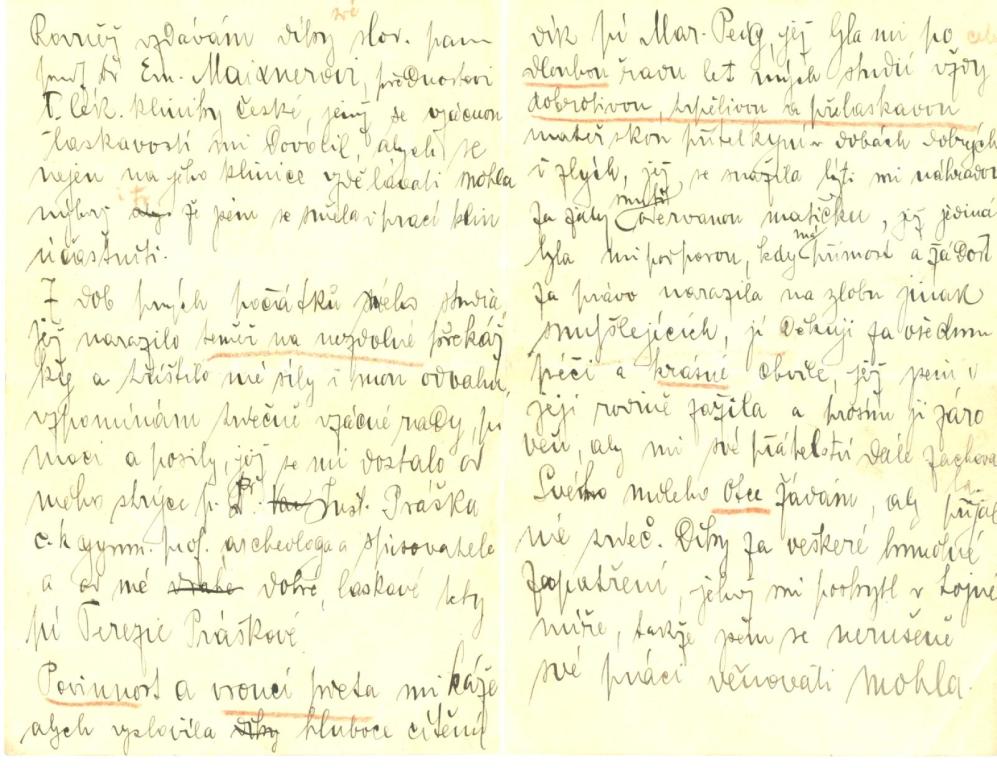 své
Rovněž vzdávám díky slov. pam
prof. Dr Em. Maixnerovi, přednostovi
I. lék. kliniky české, jenž se vzácnou
laskavostí mi dovolil, abych se
nejen na jeho klinice vzdělávati mohla
nýbrž že jsem se směla i prací klin
účastniti.
Z dob prvých počátků mého studia
jež narazilo téměř na nezdolné překáž
ky a tříštilo mé síly i mou odvahu,
vzpomínám srdečně vzácné rady, po
moci a posily, jež se mi dostalo od
mého strýce p. Dr. Just. Práška
c. k. gymn. prof. archeologa a spisovatele
a od mé dobré, laskavé tety
pí Terezie Práškové.
Povinnost a vroucí sveta mi káže
abych vyslovila díky hluboce cítěný
dík pí Mar. Peig, jež byla mi po celou
dlouhou řadu let mých studií vždy
dobrotivou, trpělivou a přelaskavou
mateřskou přítelkyní v dobách dobrých
i zlých, jež se snažila býti mi náhradou
za záhy smrtí odervanou matičku, jež jediná
byla mi podporou, kdy má přímost a žádost
za právo narazila na zlobu jinak
smýšlejících, jí děkuji za všechnu
péči a krásné chvíle, jež jsem v
její rodině zažila a prosím ji záro
veň, aby mi své přátelství dále zachovala
Svého milého Otce žádám, aby přijal
mé srdeč. Díky za veškeré hmotné
zaopatření, jehož mi poskytl v hojné
míře, takže jsem se nerušeně
své práci věnovati mohla.